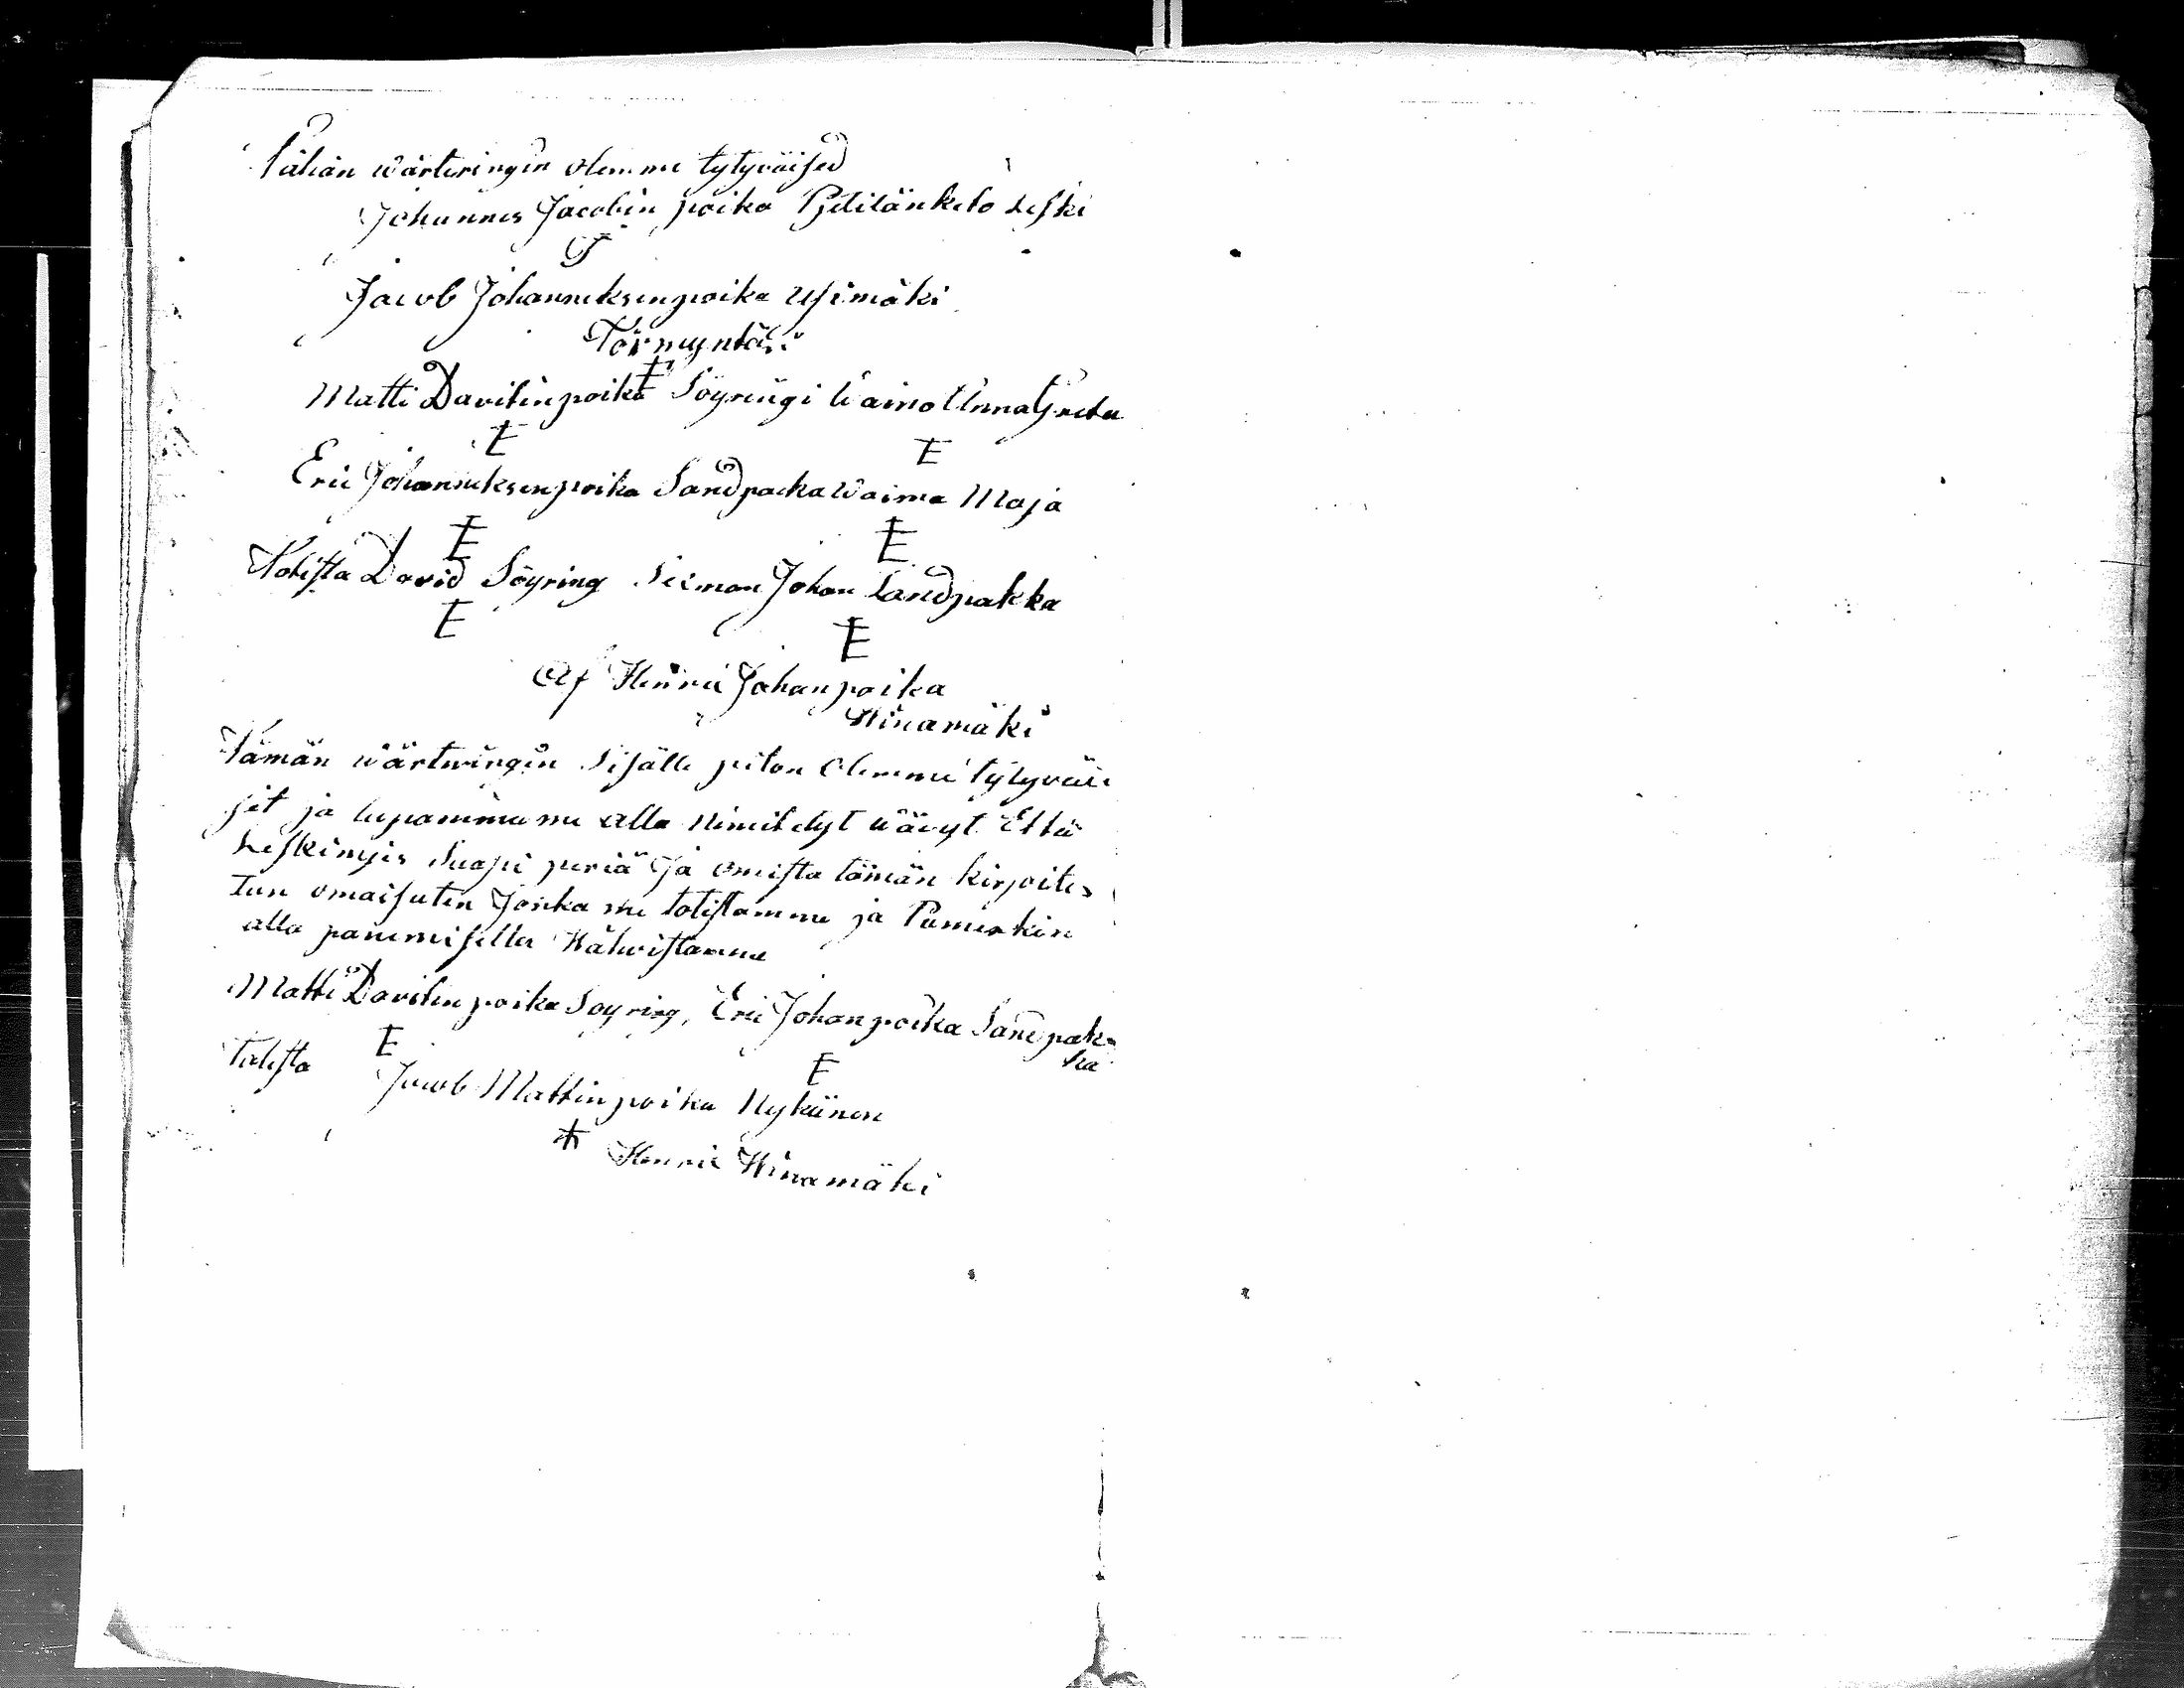 Tähän wärteringin olemme tytyväised
Johannes Jacobin poika Pietilänketo Leski
Jacob Johanneksenpoika Usimäki
Förmyntäri
Matti Davitinpoika Söyringi Waimo Anna Greta
E E
Eric Johanneksenpoika Sandpacka Waimo Maja
E E
Totista David Söyring Siemon Johan Sandpakka
E E
Af Henric Johanpoika
Winamäki
Tämän wärteringin Sisälle piton Olemme tytyväi
set ja lupamma me alla Nimitetyt wävyt Että
Leskimyis Suapi periä ja omista tämän kirjoite
tun omaisuten Jonka me totistamme ja Pumerkin
alla panemisella Wahwistamme
Matti Davitinpoika Söyring, Eric Johanpoika Sandpak-
ka
E E
Totista Jacob Mattinpoika Nykänen
Henric Winamäki